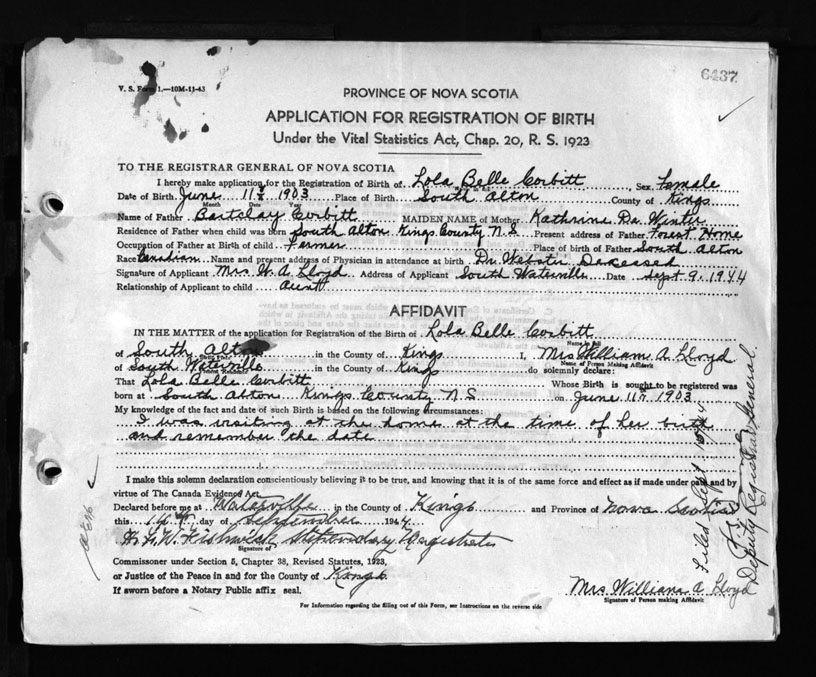 6437
V. S. Form 1.—10M-11-43
PROVINCE OF NOVA SCOTIA
APPLICATION FOR REGISTRATION OF BIRTH
Under the Vital Statistics Act, Chap. 20, R. S. 1923
TO THE REGISTRAR GENERAL OF NOVA SCOTIA
I hereby make application for the Registration of Birth of Lola Belle Corbitt, Sex Female
Date of Birth June 11th 1903 Place of Birth South Alton County of Kings
Month Day Year
Name of Father Bartclay Corbitt MAIDEN NAME of Mother Kathrine De Winter
Residence of Father when child was born South Alton Kings County N.S Present address of Father Forest Home
Occupation of Father at Birth of child Farmer Place of birth of Father South Alton
Race Canadian Name and present address of Physician in attendance at birth Dr Webster Deseased
Signature of Applicant Mrs W. A. Lloyd Address of Applicant South Waterville Date Sept 9. 1944
Relationship of Applicant to child Aunt
AFFIDAVIT
IN THE MATTER of the application for Registration of the Birth of Lola Belle Corbitt
Name in full
of South Alton in the County of Kings I, Mrs William A. Lloyd
Birth Place Name of Person Making Affidavit
of South Waterville in the County of Kings do solemnly declare:
That Lola Belle Corbitt Whose Birth is sought to be registered was
born at South Alton Kings County N.S on June 11th 1903
My knowledge of the fact and date of such Birth is based on the following circumstances:
I was visiting at the home at the time of her birth
and remember the date
I make this solemn declaration conscientiously believing it to be true, and knowing that it is of the same force and effect as if made under oath and by
virtue of The Canada Evidence Act.
Declared before me at Waterville in the County of Kings and Province of Nova Scotia
this day of September 1944.
H. G. W. Fishwick Stipendiary Magistrate
Signature of
Commissioner under Section 5, Chapter 38, Revised Statutes, 1923,
or Justice of the Peace in and for the County of Kings
If sworn before a Notary Public affix seal.
Mrs William A Lloyd
Signature of Person making Affidavit
For Information regarding the filling out of this Form, see Instructions on the reverse side
Filed Sept 44
Deputy Registrar General